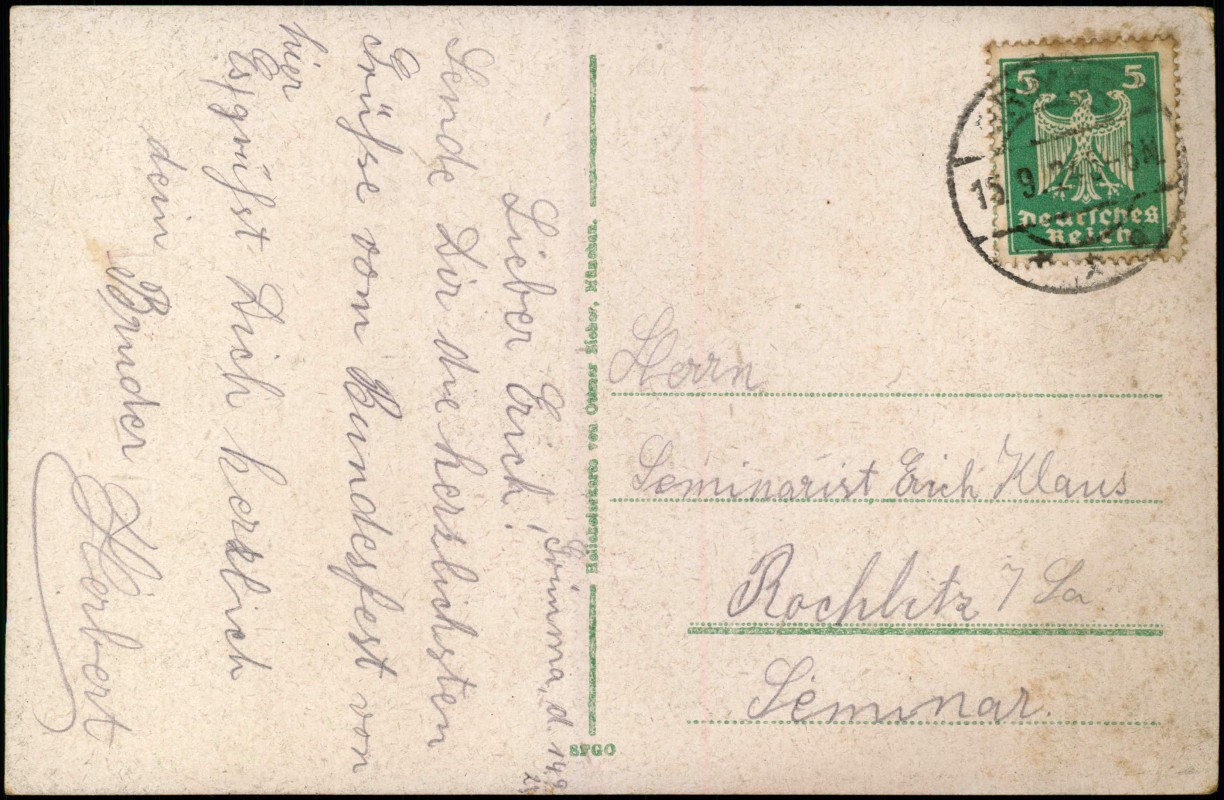 Grimma, d. 14.9.
25
Lieber Erich!
Sende Dir die herzlichsten
Grüße vom Bundesfest von
hier
Es grüßt Dich herzlich
dein
Bruder
Herbert
Heliokolorkarte von Ottmar Zieher, München.
SPGO
5 5
Deutsches
Reich
15.9. 6-8N
Herrn
Seminarist Erich Klaus
Rochlitz i/Sa
Seminar.